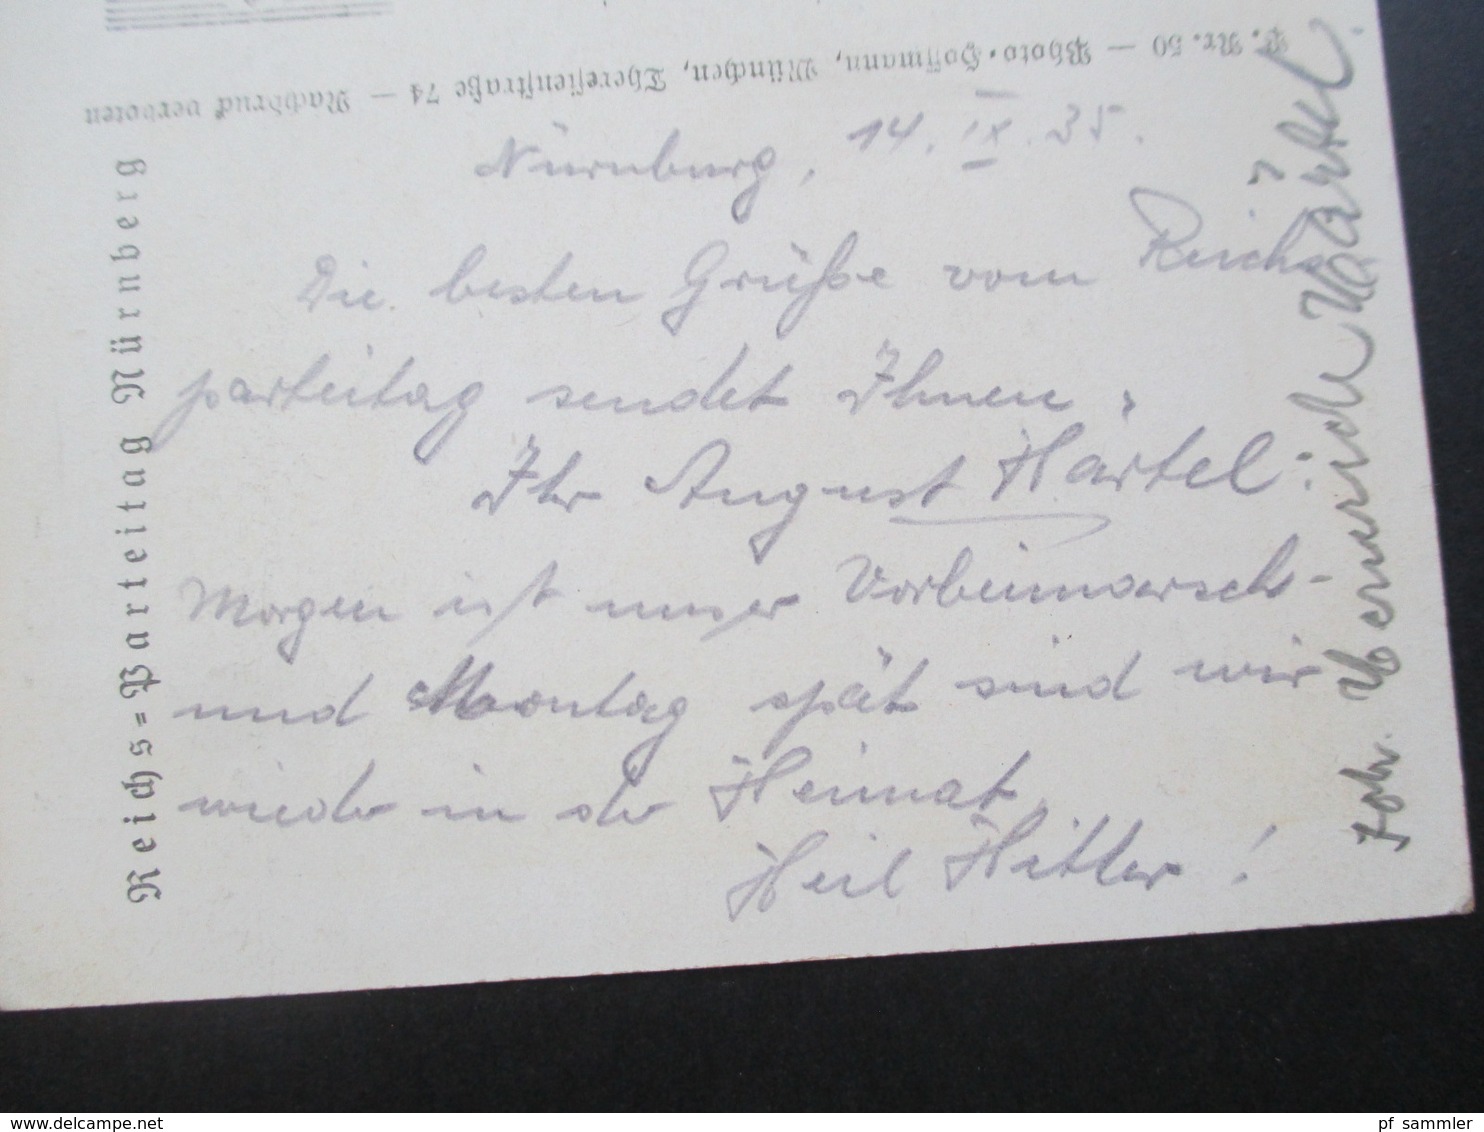 P. Nr. 50 — Photo-Hoffmann, München, Theresienstraße 74 — Nachdruck verboten
Reichs=Parteitag Nürnberg
Nürnburg, 14. IX. 35.
Die besten Grüße vom Reichs
parteitag sendet Ihnen,
Ihr August Härtel.
Morgen ist unser Vorbeimarsch-
und Montag spät sind wir
wieder in der Heimat.
Heil Hitler!
Härtel.
www.delcampe.net
pf_sammler